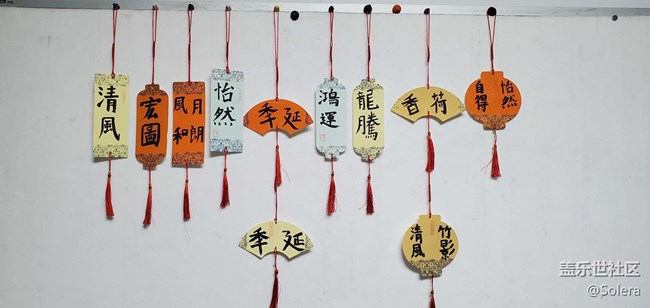 清風
宏圖
月朗
风和
怡然
延季
鴻運
龍騰
荷香
怡然
自得
延季
竹影
清風
盖乐世社区
@Solera